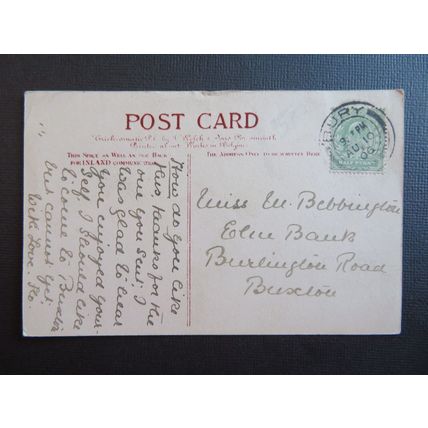 POST CARD
Chromatic P.C. by J. Welch & Sons Portsmouth
Printed at our Works in Belgium
THIS SPACE AS WELL AS THE BACK
FOR INLAND COMMUNICATIONS
THE ADDRESS ONLY TO BE WRITTEN HERE
BURY
PM
How do you like
this, thanks for the
one you sent. I
was glad to hear
you enjoyed your-
self. I should like
to come to Buxton
but cannot yet.
With love. Flo.
Miss M. Bebbington
Elm Bank
Burlington Road
Buxton